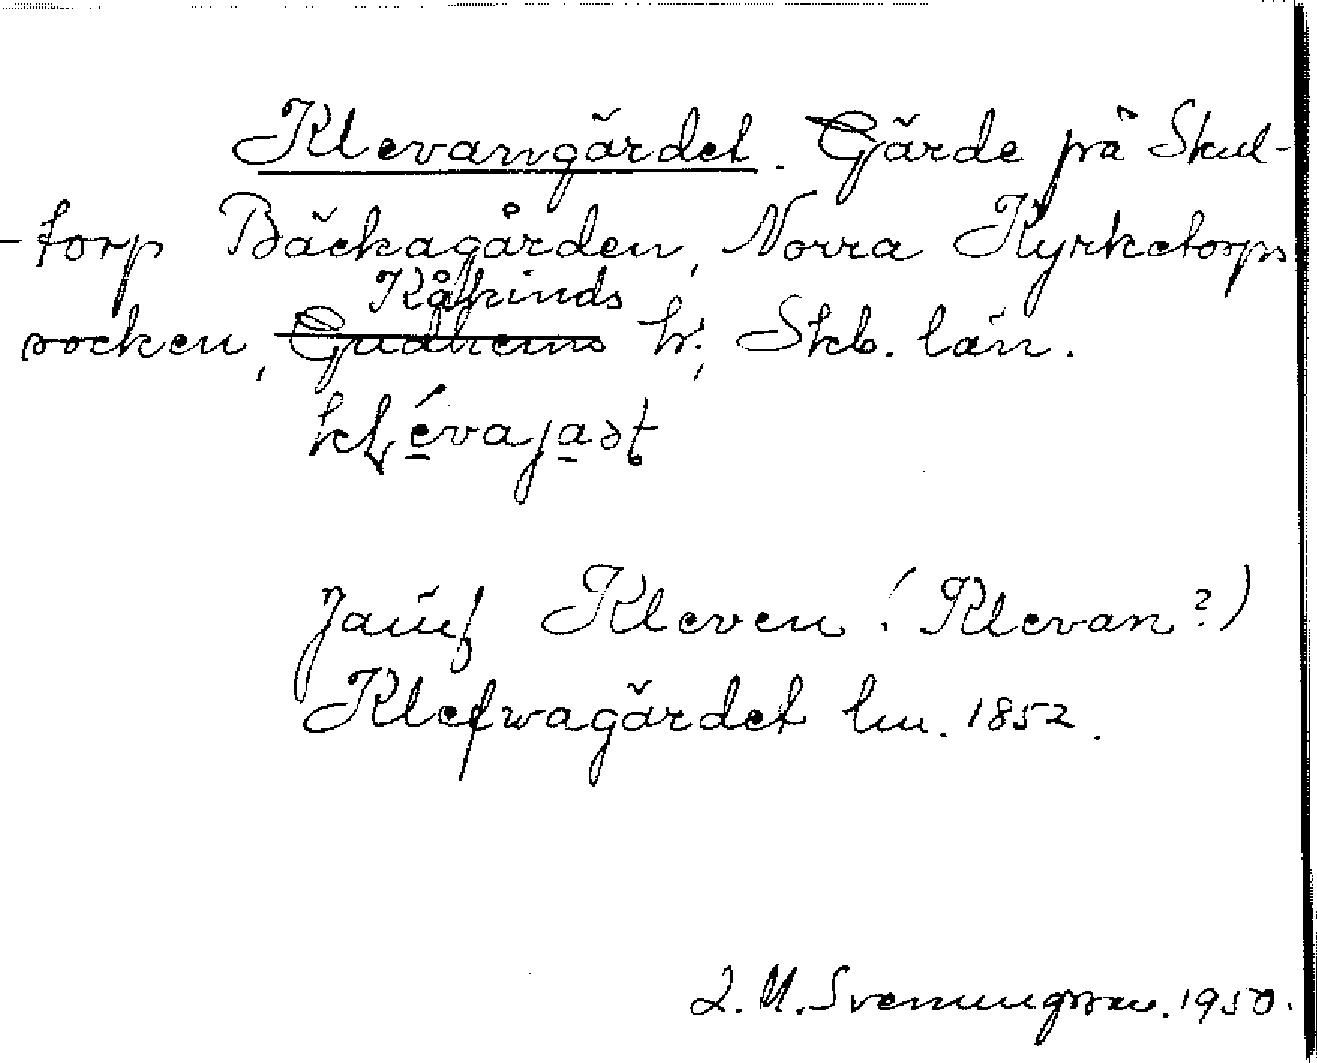 Klevangärdet. Gärde på Skul-
-torp Bäckagården, Norra Kyrketorps
Kåkinds
socken, Gudhems h., Skb. län.
kļévajast
Jämf Kleven (Klevan?)
Klefwagärdet lm. 1852.
Svenungsson. 1950.